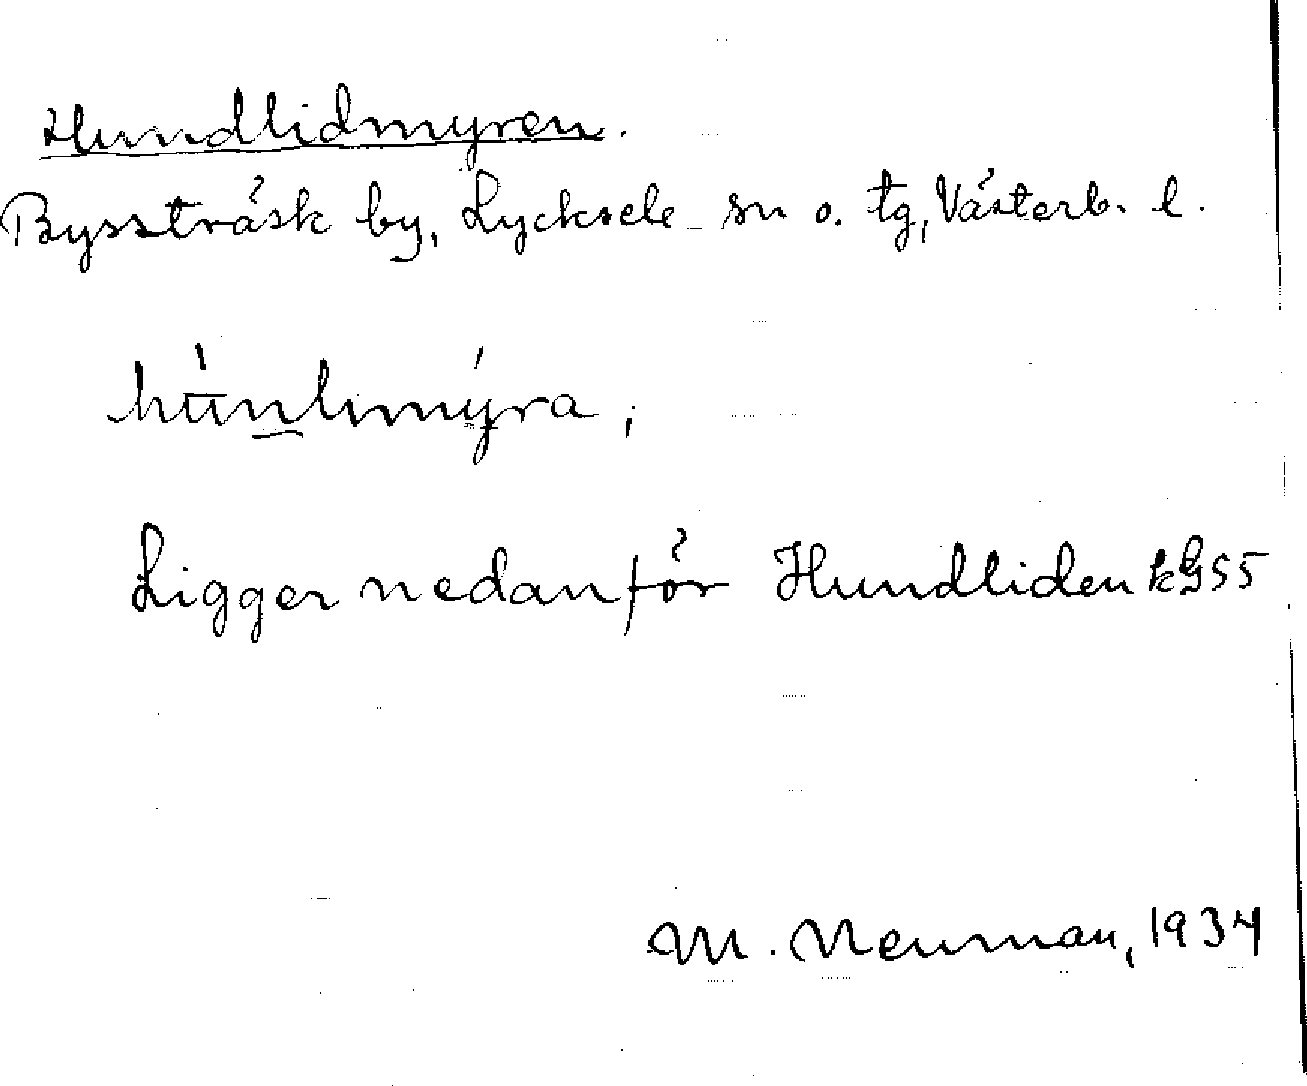 Hundlidmyren.
Byssträsk by, Lycksele sn o. tg, Västerb. l.
Ligger nedanför Hundliden kG55
M. Neuman, 1934